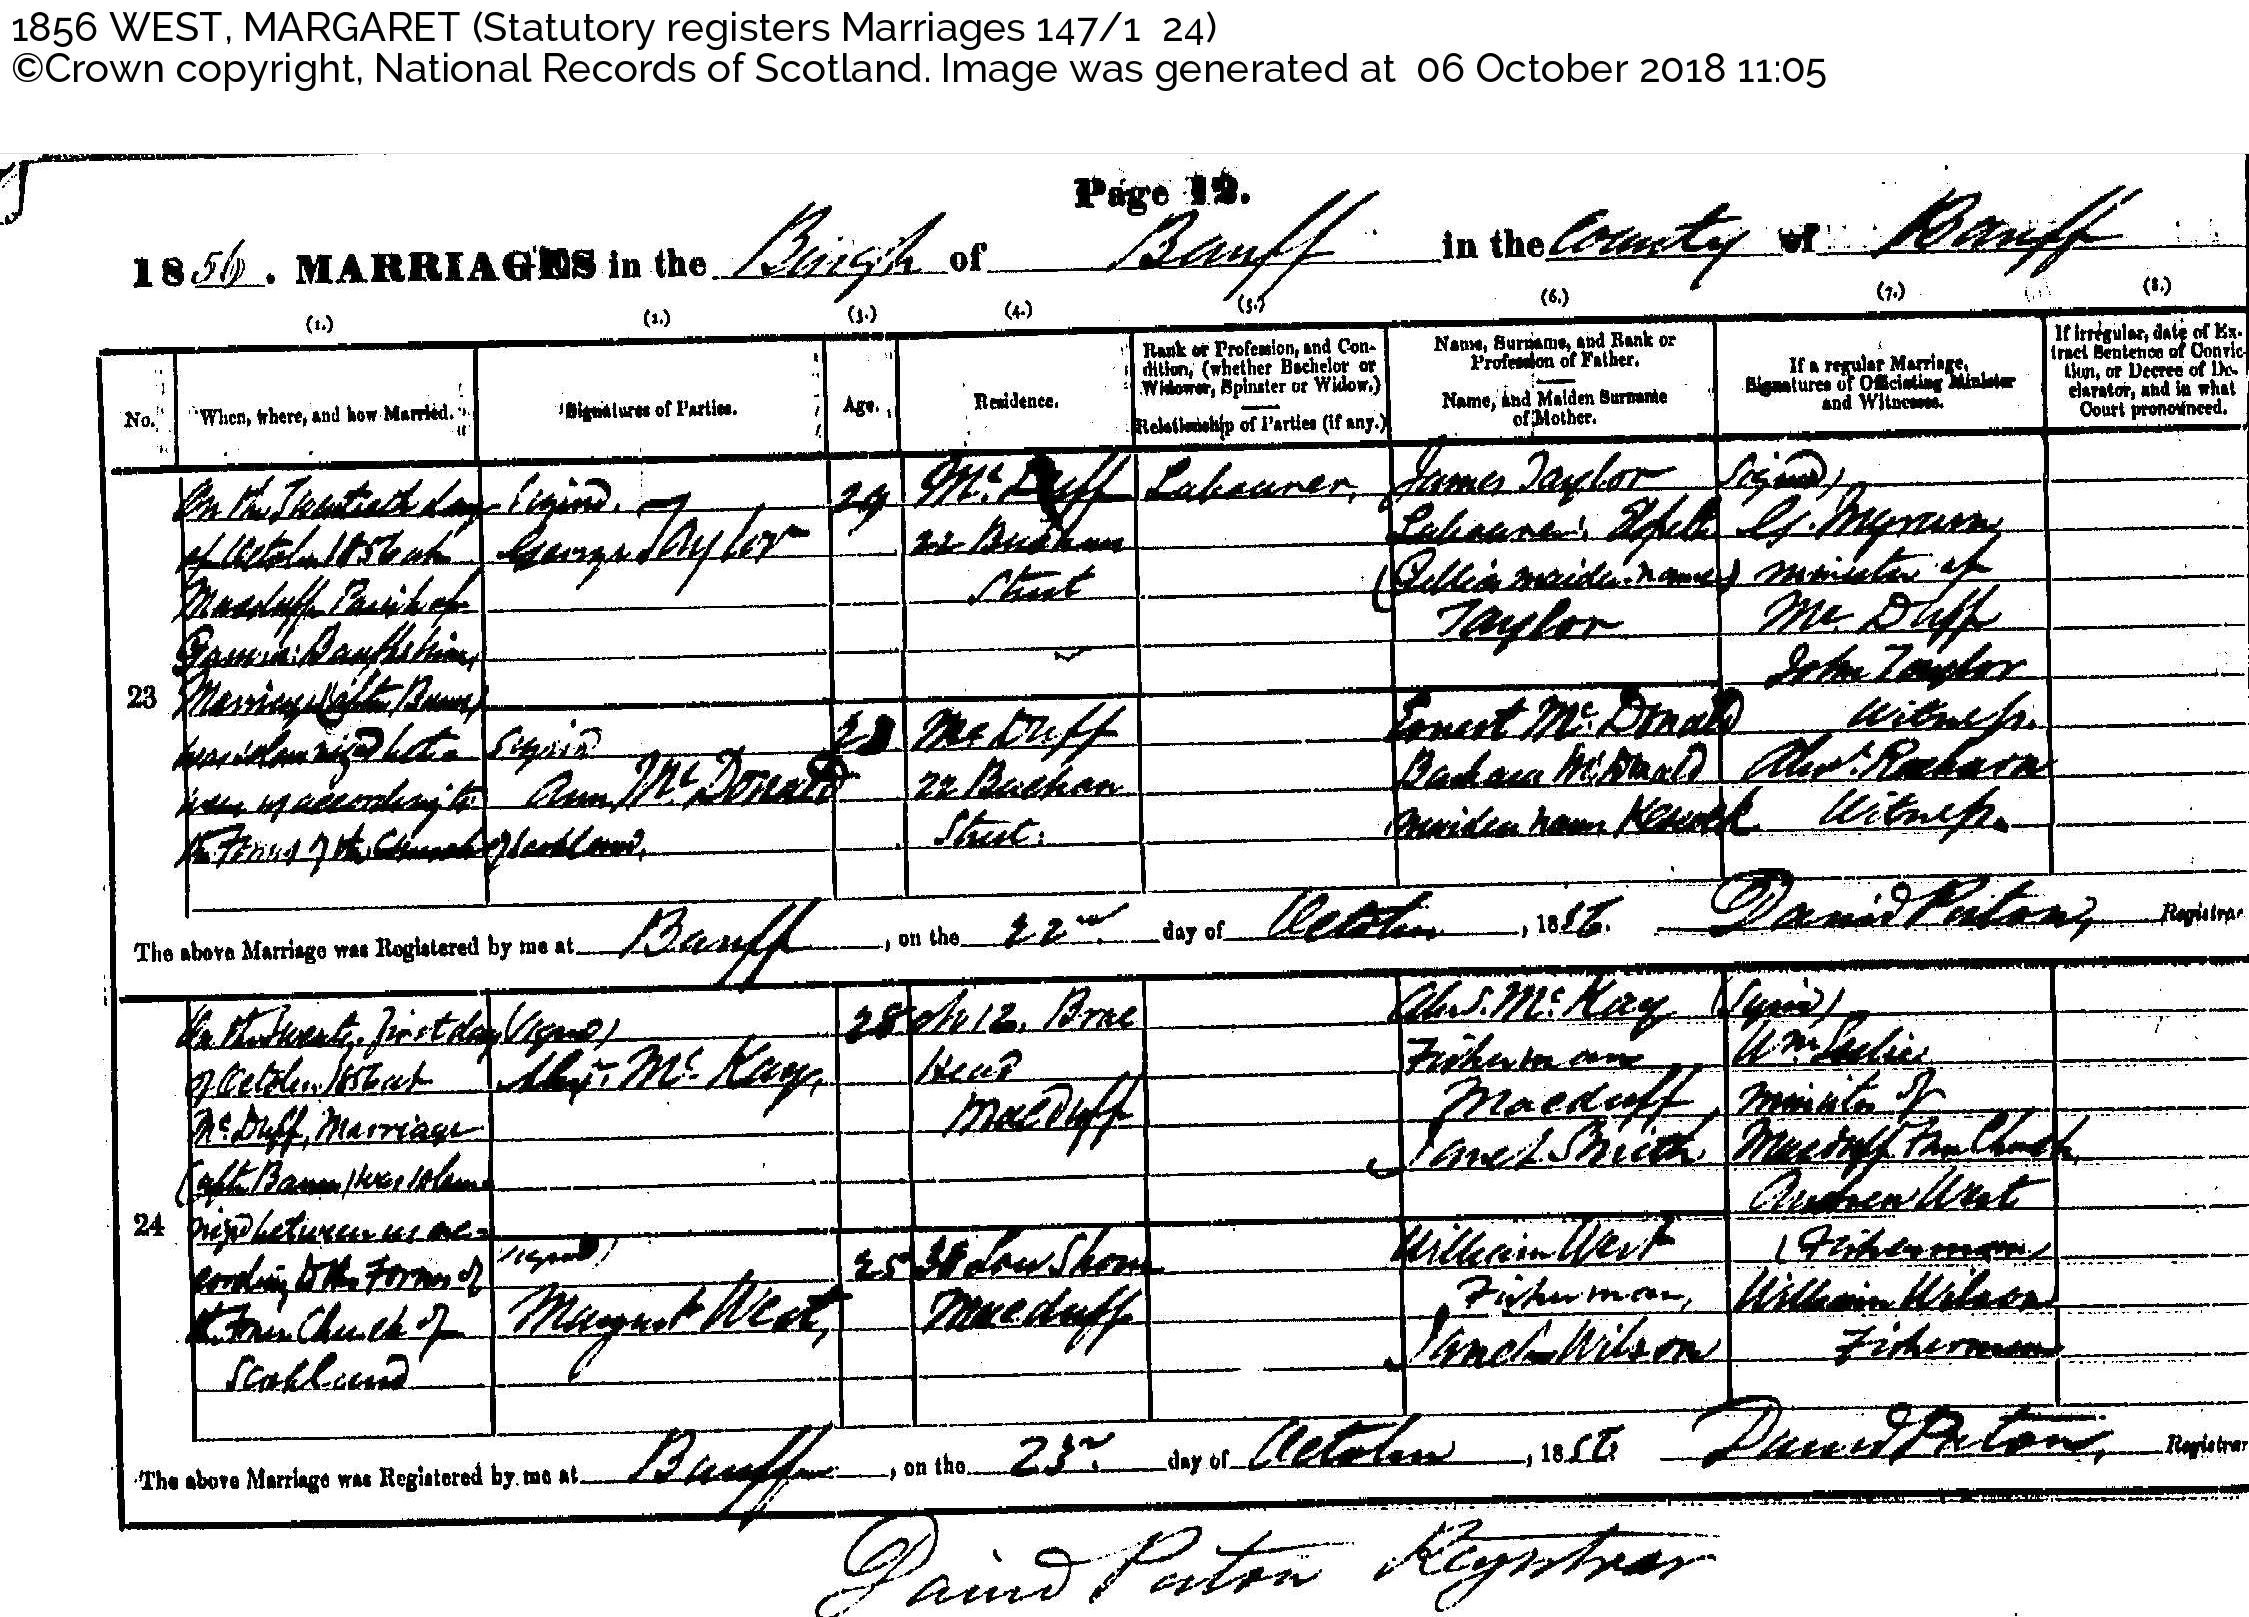 1856 WEST, MARGARET (Statutory registers Marriages 147/1 24)
©Crown copyright, National Records of Scotland. Image was generated at 06 October 2018 11:05
Page 12.
1856. MARRIAGES in the Burgh of Banff in the County of Banff
(1.) (2.) (3.) (4.) (5.) (6.) (7.) (8.)
No.
When, where, and how Married.
Signatures of Parties.
Age.
Residence.
Rank or Profession, and Con-
dition, (whether Bachelor or
Widower, Spinster or Widow.)
Relationship of Parties (if any.)
Name, Surname, and Rank or
Profession of Father.
Name, and Maiden Surname
of Mother.
If a regular Marriage,
Signatures of Officiating Minister
and Witnesses.
If irregular, date of Ex-
tract Sentence of Convic-
tion, or Decree of De-
clarator, and in what
Court pronounced.
23
On the Twentieth day
of October 1856 at
Macduff Parish of
Gamrie Banffshire,
Marriage (after Banns)
was solemnized bet-
ween us according to
the Forms of the Church of Scotland.
Signed.
George Taylor
Signed
Ann McDonald
29
McDuff
22 Buchan
Street
McDuff
22 Buchan
Street.
Labourer.
James Taylor
Labourer. Elspet
maiden name)
Taylor
McDonald
McDonald
maiden name
(Signed)
minister of
McDuff
John Taylor
Witness.
Witness.
The above Marriage was Registered by me at Banff, on the 22nd. day of October, 1856. David Paton, Registrar
24
On the Twenty first day
of October 1856 at
McDuff, Marriage
(after Banns) was solem-
nized between us ac-
cording to the Forms of
the Free Church of
Scotland
(Signed)
Alexr. McKay,
(signed)
Margaret West,
28
25
No 12. Brae
Head
Macduff
38 Low Shore
Macduff
Alex. McKay
Fisherman
Macduff
Janet Smith
William West
Fisherman,
Janet Wilson
(Signed)
Wm Leslie
minister of
Macduff Free Church,
Andrew West
(Fisherman)
William Wilson
Fisherman
The above Marriage was Registered by me at Banff, on the 23rd. day of October, 1856 David Paton, Registrar
David Paton Registrar